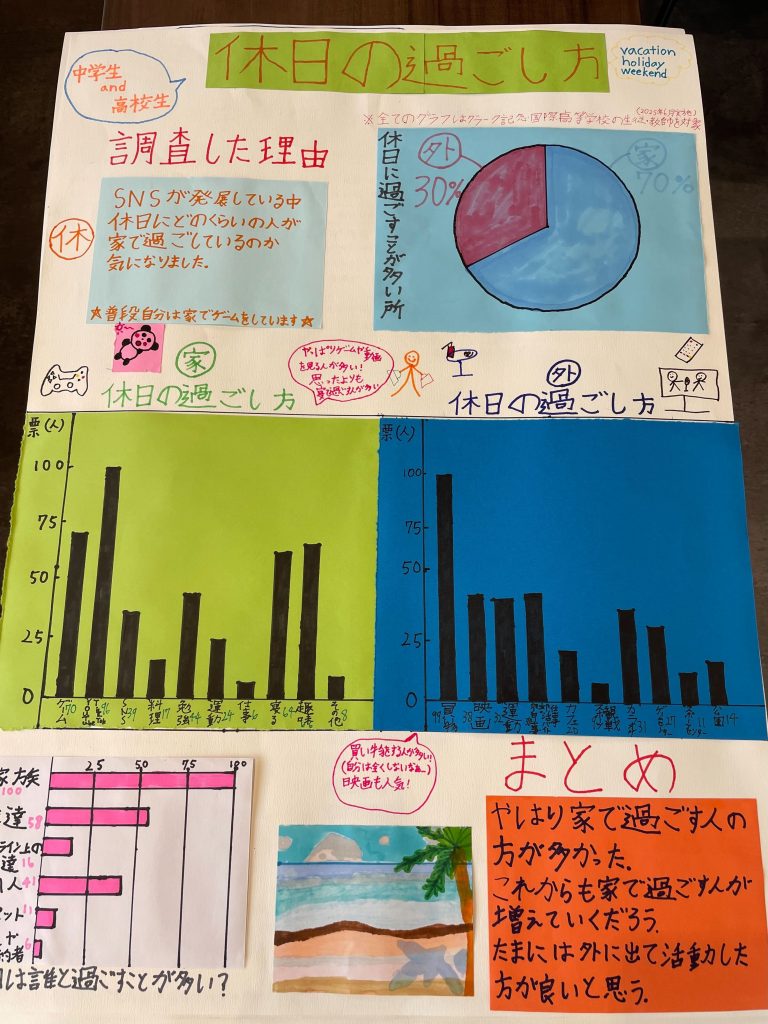 休日の過ごし方
中学生
and
高校生
vacation
holiday
weekend
調査した理由
休
SNSが発展している中
休日にどのくらいの人が
家で過ごしているのか
気になりました。
☆普段自分は家でゲームをしています☆
(2025年6月
※全てのグラフはクラーク記念国際高等学校の生徒・教師を対象
休日に過ごすことが多い所
外
30%
家
70%
家
休日の過ごし方
やっぱりゲームや動画
を見る人が多い!
思ったよりも
外
休日の過ごし方
票(人)
100
75
50
25
0
ゲーム70
96
SNS39
料理17
勉強44
運動24
仕事6
寝る64
趣味
その他8
票(人)
100
75
50
25
0
買い物99
映画38
運動32
カフェ20
カラオケ31
27
11
公園14
買い物する人が多い!
(自分は全くしないなぁ…)
映画も人気!
25
50
75
100
家族
100
達58
ライン上の
達16
人41
ット11
や
約者6
は誰と過ごすことが多い?
まとめ
やはり家で過ごす人の
方が多かった。
これからも家で過ごす人が
増えていくだろう。
たまには外に出て活動した
方が良いと思う。